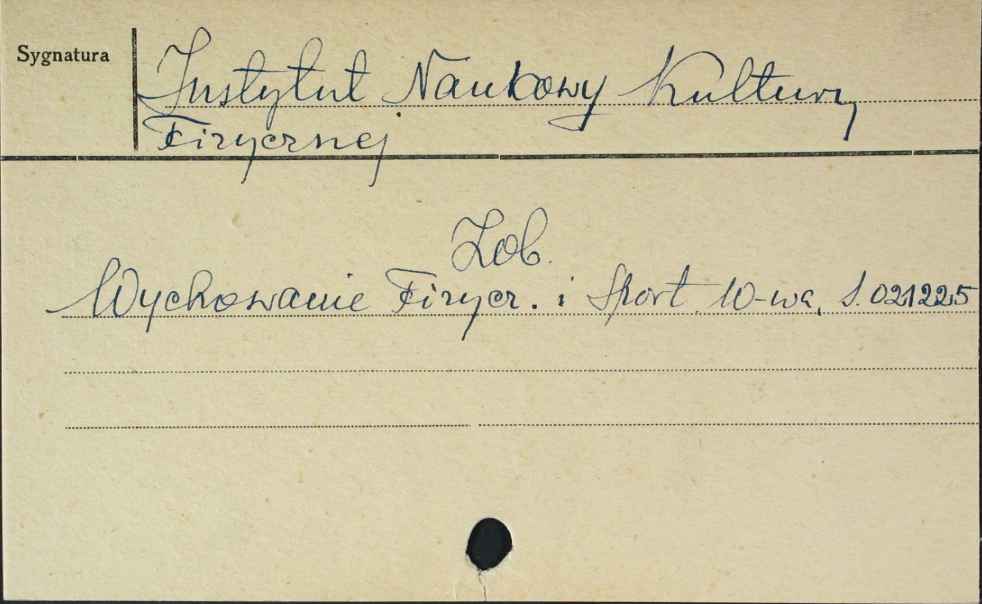 Sygnatura
Instytut Naukowy Kultury
Fizycznej
Zob.
Wychowanie Fizycz. i Sport W-wa, S.021225